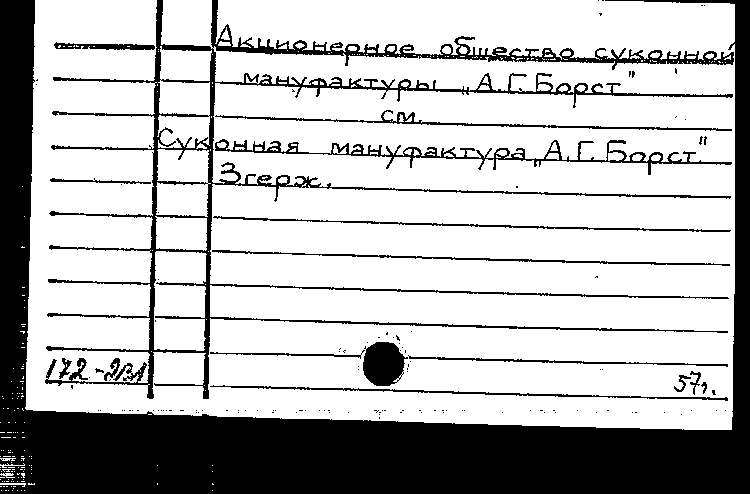 Акционерное общество суконной
мануфактуры „А.Г. Борст"
см.
Суконная мануфактура „А.Г. Борст"
Згерж.
57г.